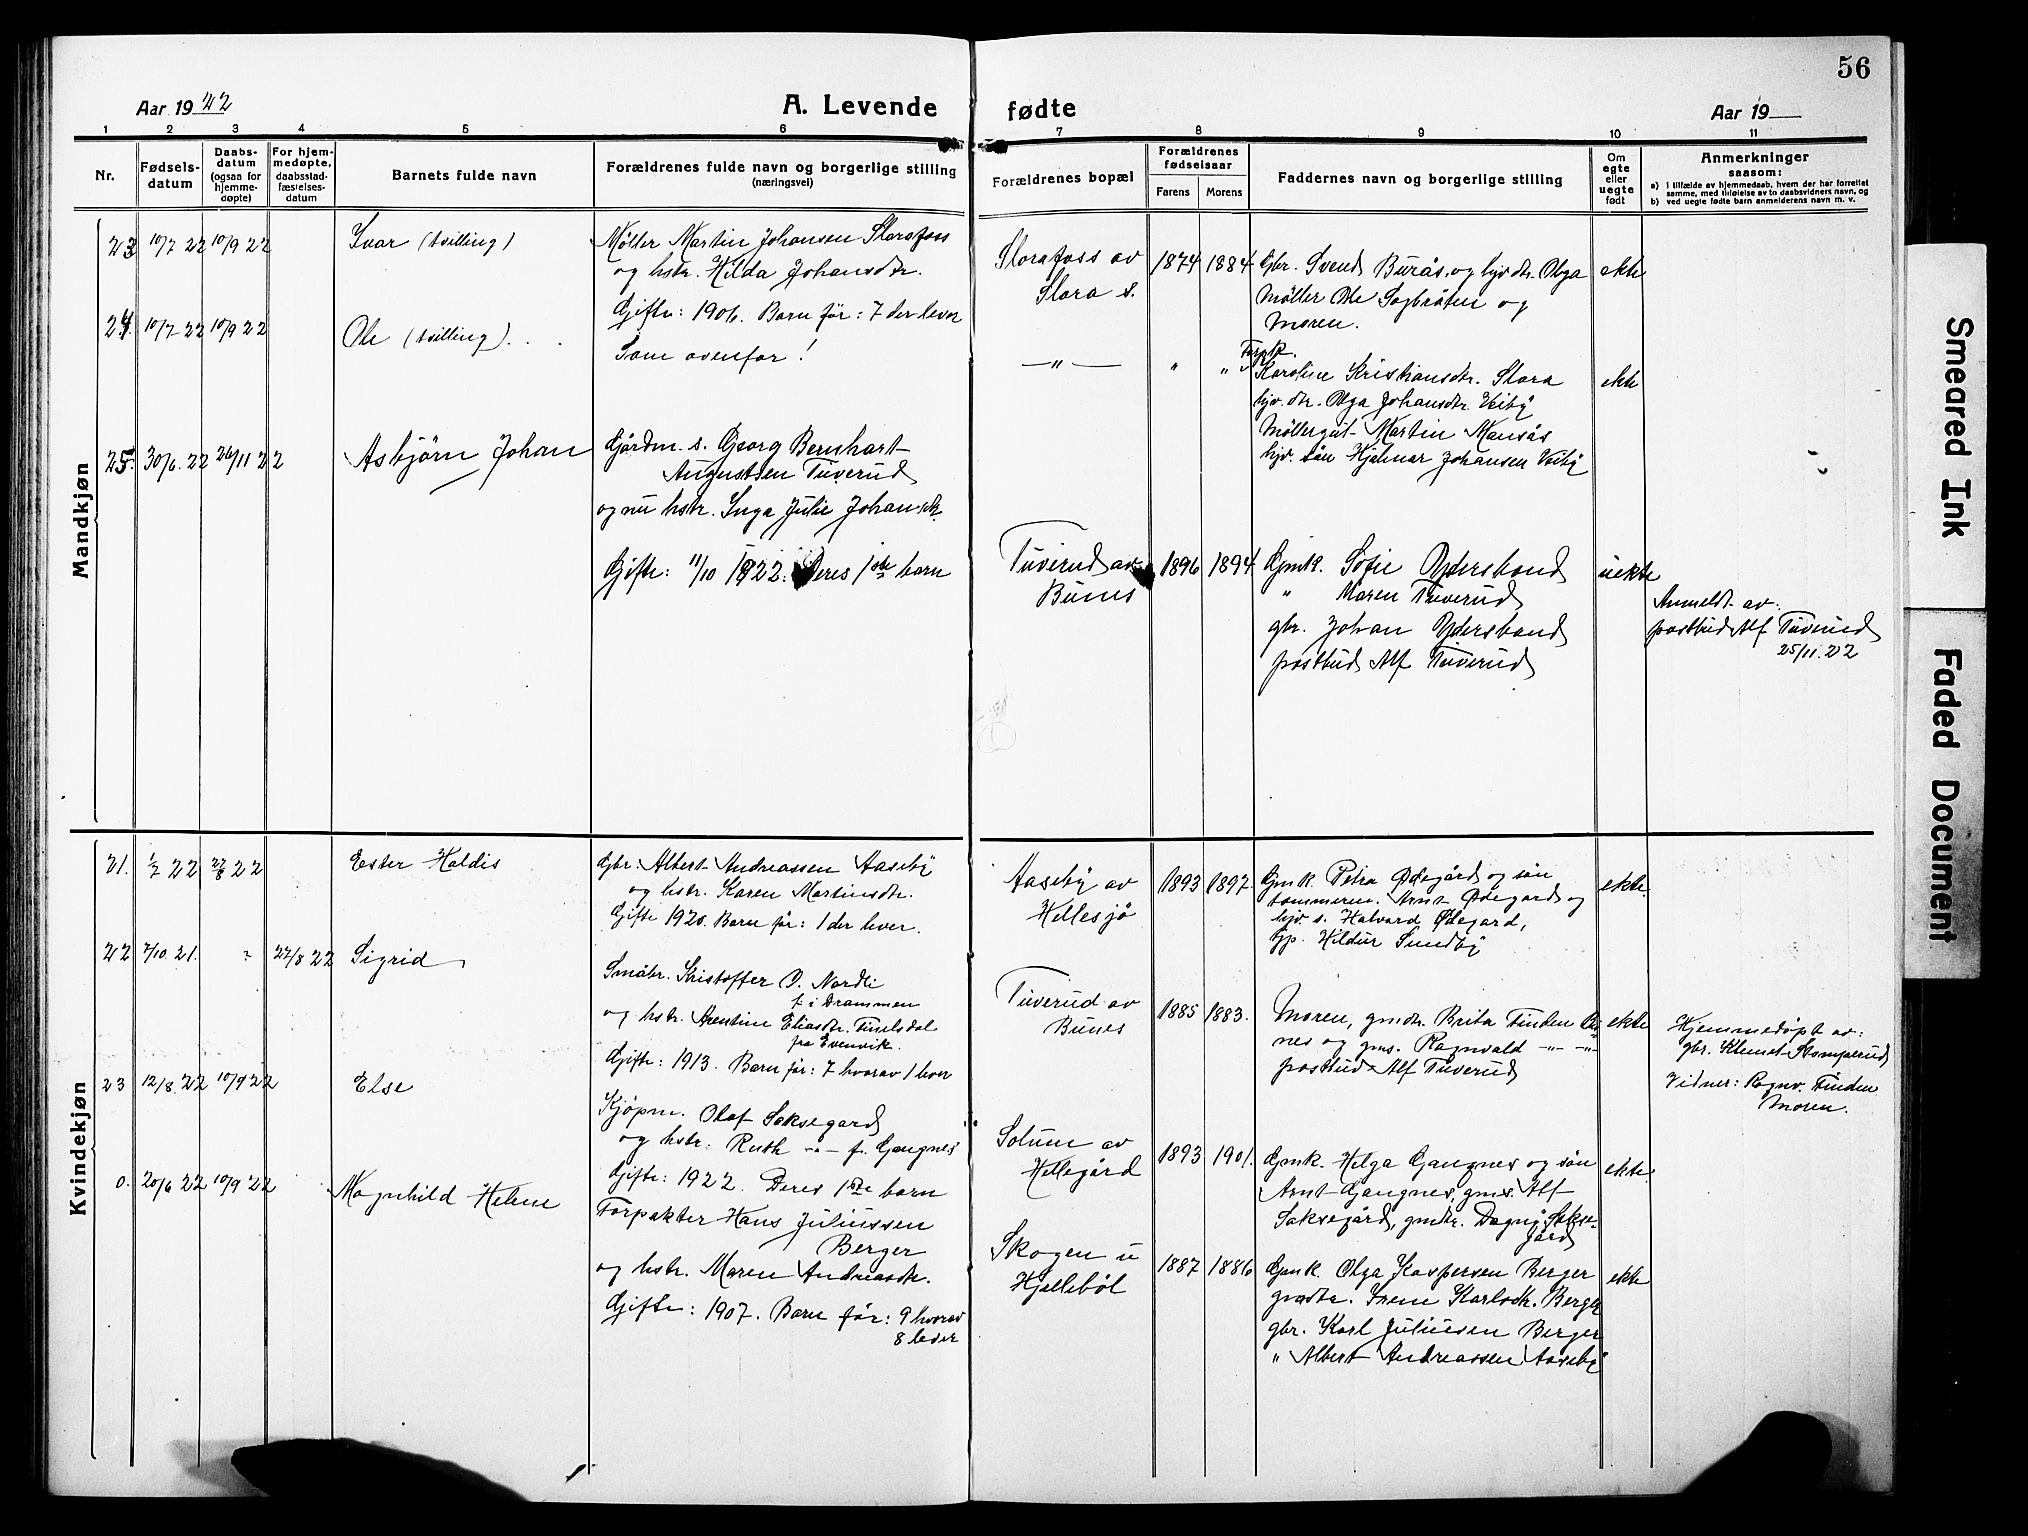 56
Aar 1922
A. Levende fødte
Aar 19
1 2 3 4 5 6 7 8 9 10 11
Nr.
Fødsels-
datum
Daabs-
datum
(ogsaa for
hjemme-
døpte)
For hjem-
medøpte,
daabsstad-
fæstelses-
datum
Barnets fulde navn
Forældrenes fulde navn og borgerlige stilling
(næringsvei)
Forældrenes bopæl
Forældrenes
fødselsaar
Farens Morens
Faddernes navn og borgerlige stilling
Om
egte
eller
uegte
født
Anmerkninger
saasom:
a) i tilfælde av hjemmedaab, hvem der har forrettet
samme, med tilføielse av to daabsvidners navn, og
b) ved uegte fødte barn anmelderens navn m. v.
Mandkjøn
23 10/7 22 10/9 22
Ivar (tvilling)
Møller Martin Johansen Slorafoss
og hstr. Hilda Johansdtr.
Gifte: 1906. Barn før: 7 der lever
Slorafoss av
Slora s.
1874 1884
Gbr. Svend Burås, og hjv. dtr. Olga
Møller Ole Sagbråten og
Moren.
ekte
24. 10/7 22 10/9 22
Ole (tvilling)
Som ovenfor!
— " —
" "
Forpk.
Karoline Kristiansdtr. Slora
hjv. dtr. Olga Johansdtr. Veiby
Møllergut Martin Mansås
hjv. søn Hjalmar Johansen Veiby
ekte
25. 30/6. 22 26/11 22
Asbjørn Johan
Gårdm. s. Georg Bernhart
Augustsen Tuverud
og nu hstr. Inga Julie Johansdtr.
Gifte: 11/10 1922. Deres 1ste barn
Tuverud av
Bunes
1896 1894
Gmk. Sofie Ydersbond
" Maren Tuverud
gbr. Johan Ydersbond
postbud Alf Tuverud
uekte
Anmeldt av:
postbud Alf Tuverud
25/11. 22
Kvindekjøn
21. 1/7 22 27/8 22
Ester Haldis
Gbr. Albert Andreassen Aaseby
og hstr. Karen Martinsdtr.
Gifte 1920. Barn før: 1 der lever.
Aaseby av
Hellesjø
1893 1897.
Gmk. Petra Ødegård og søn
tømmerm. Arnt Ødegård og
hjv. s. Halvard Ødegard,
Gp. Hildur Sundby
ekte.
22 7/10. 21. 27/8 22
Sigrid
Småbr. Kristoffer O. Nordli
f. i Drammen
og hstr. Arentine Eliasdtr. Tindsdal
fra Evenvik.
Gifte: 1913. Barn før: 7 hvorav 1 lever
Tuverud av
Bunes
1885 1883.
Moren, gmdtr. Brita Finden Bu-
nes og gms. Ragnvald -"- -"-
postbud Alf Tuverud
ekte
Hjemmedøpt av:
gbr. Klemet Stomperud
Vidner: Ragnv. Finden
Moren.
23 12/8 22 10/9 22
Else
Kjøpm. Olaf Saksegard
og hstr: Ruth -"- f. Gangnes
Gifte: 1922. Deres 1ste barn
Solum av
Hellegård
1893 1901.
Gmk. Helga Gangnes og søn
Arnt Gangnes, gms. Alf
Saksegård, gmdtr. Dagny Sakse-
gård
ekte.
0. 20/6 22 10/9 22
Magnhild Helene
Forpakter Hans Juliussen
Berger
og hstr. Maren Andreasdtr.
Gifte: 1907. Barn før: 9 hvorav
8 lever
Skogen u
Hjellebøl
1887 1886
Gmk. Olga Kaspersen Berger
gmdtr. Irene Karlsdtr. Berger
gbr. Karl Juliussen Berger
" Albert Andreassen Aaseby
ekte
Smeared Ink
Faded Document